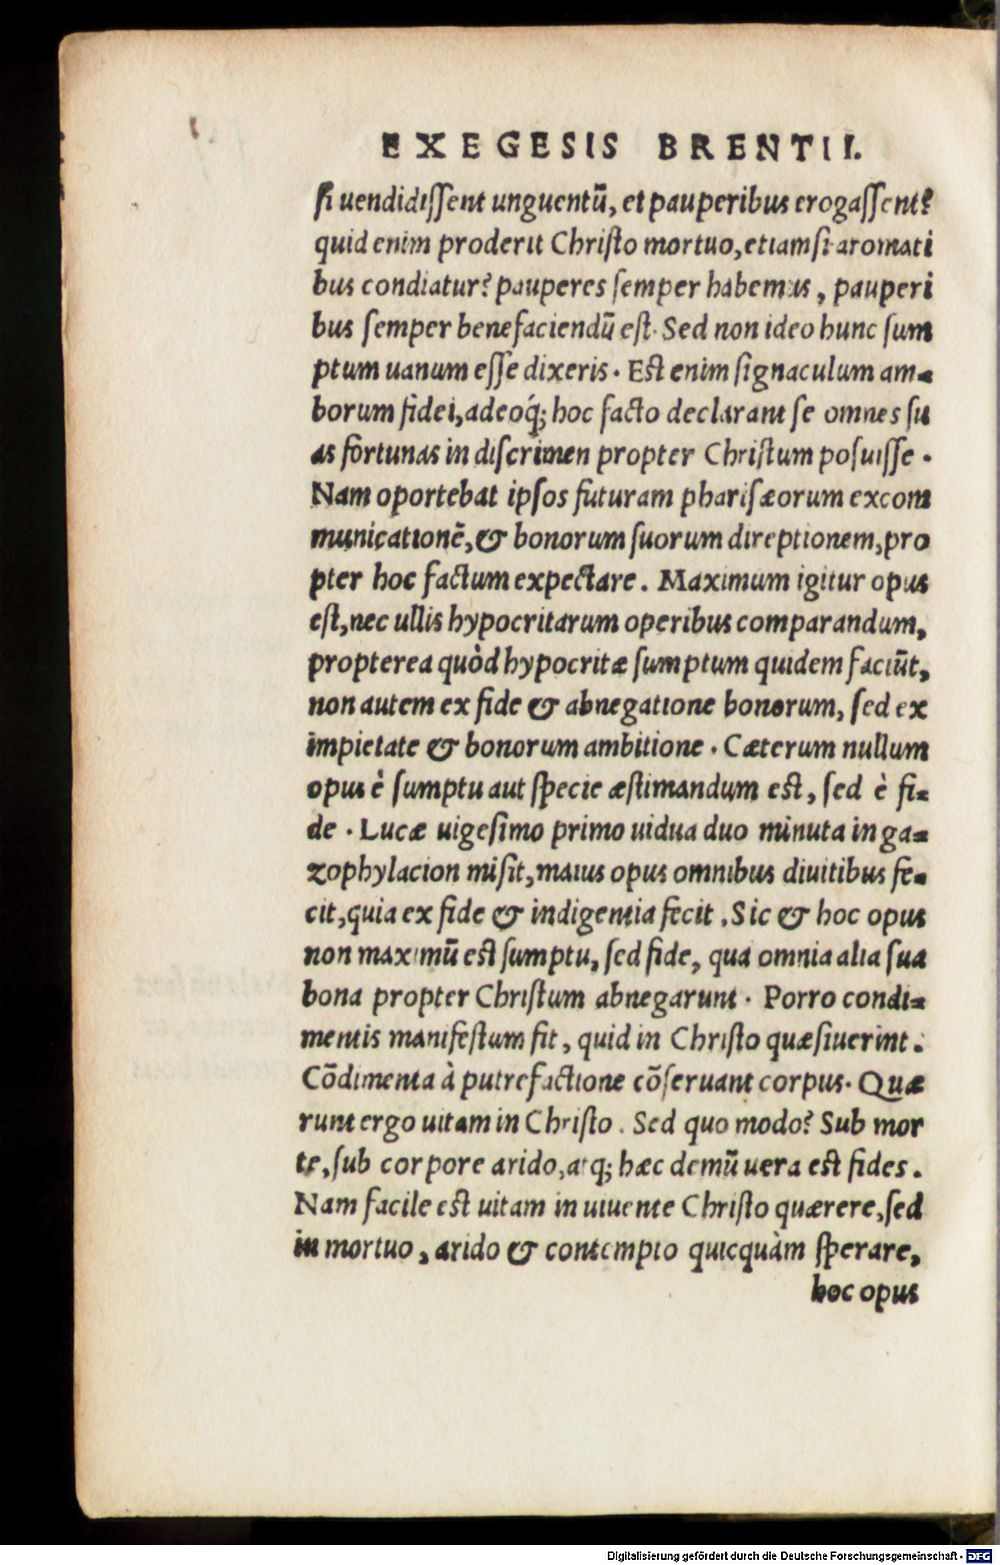 EXEGESIS BRENTII.
ſi uendidiſſent unguentũ, et pauperibus erogaſſent?
quid enim proderit Chriſto mortuo, etiam ſi aromati
bus condiatur? pauperes ſemper habemus, pauperi
bus ſemper benefaciendũ eſt. Sed non ideo hunc ſum
ptum uanum eſſe dixeris. Eſt enim ſignaculum am⸗
borum fidei, adeoq́; hoc facto declarant ſe omnes ſu
as fortunas in diſcrimen propter Chriſtum poſuiſſe.
Nam oportebat ipſos futuram phariſæorum excom
municationẽ, & bonorum ſuorum direptionem, pro
pter hoc factum expectare. Maximum igitur opus
eſt, nec ullis hypocritarum operibus comparandum,
propterea quòd hypocritæ ſumptum quidem faciũt,
non autem ex fide & abnegatione bonorum, ſed ex
impietate & bonorum ambitione. Cæterum nullum
opus è ſumptu aut ſpecie æſtimandum eſt, ſed è fi⸗
de. Lucæ uigeſimo primo uidua duo minuta in ga⸗
zophylacion miſit, maius opus omnibus diuitibus fe⸗
cit, quia ex fide & indigentia fecit. Sic & hoc opus
non maximũ eſt ſumptu, ſed fide, qua omnia alia ſua
bona propter Chriſtum abnegarunt. Porro condi⸗
mentis manifeſtum fit, quid in Chriſto quæſiuerint.
Cõdimenta à putrefactione cõſeruant corpus. Quæ
runt ergo uitam in Chriſto. Sed quo modo? Sub mor
te, ſub corpore arido, atq; hæc demũ uera eſt fides.
Nam facile eſt uitam in uiuente Chriſto quærere, ſed
in mortuo, arido & contempto quicquàm ſperare,
hoc opus
Digitalisierung gefördert durch die Deutsche Forschungsgemeinschaft - DFG